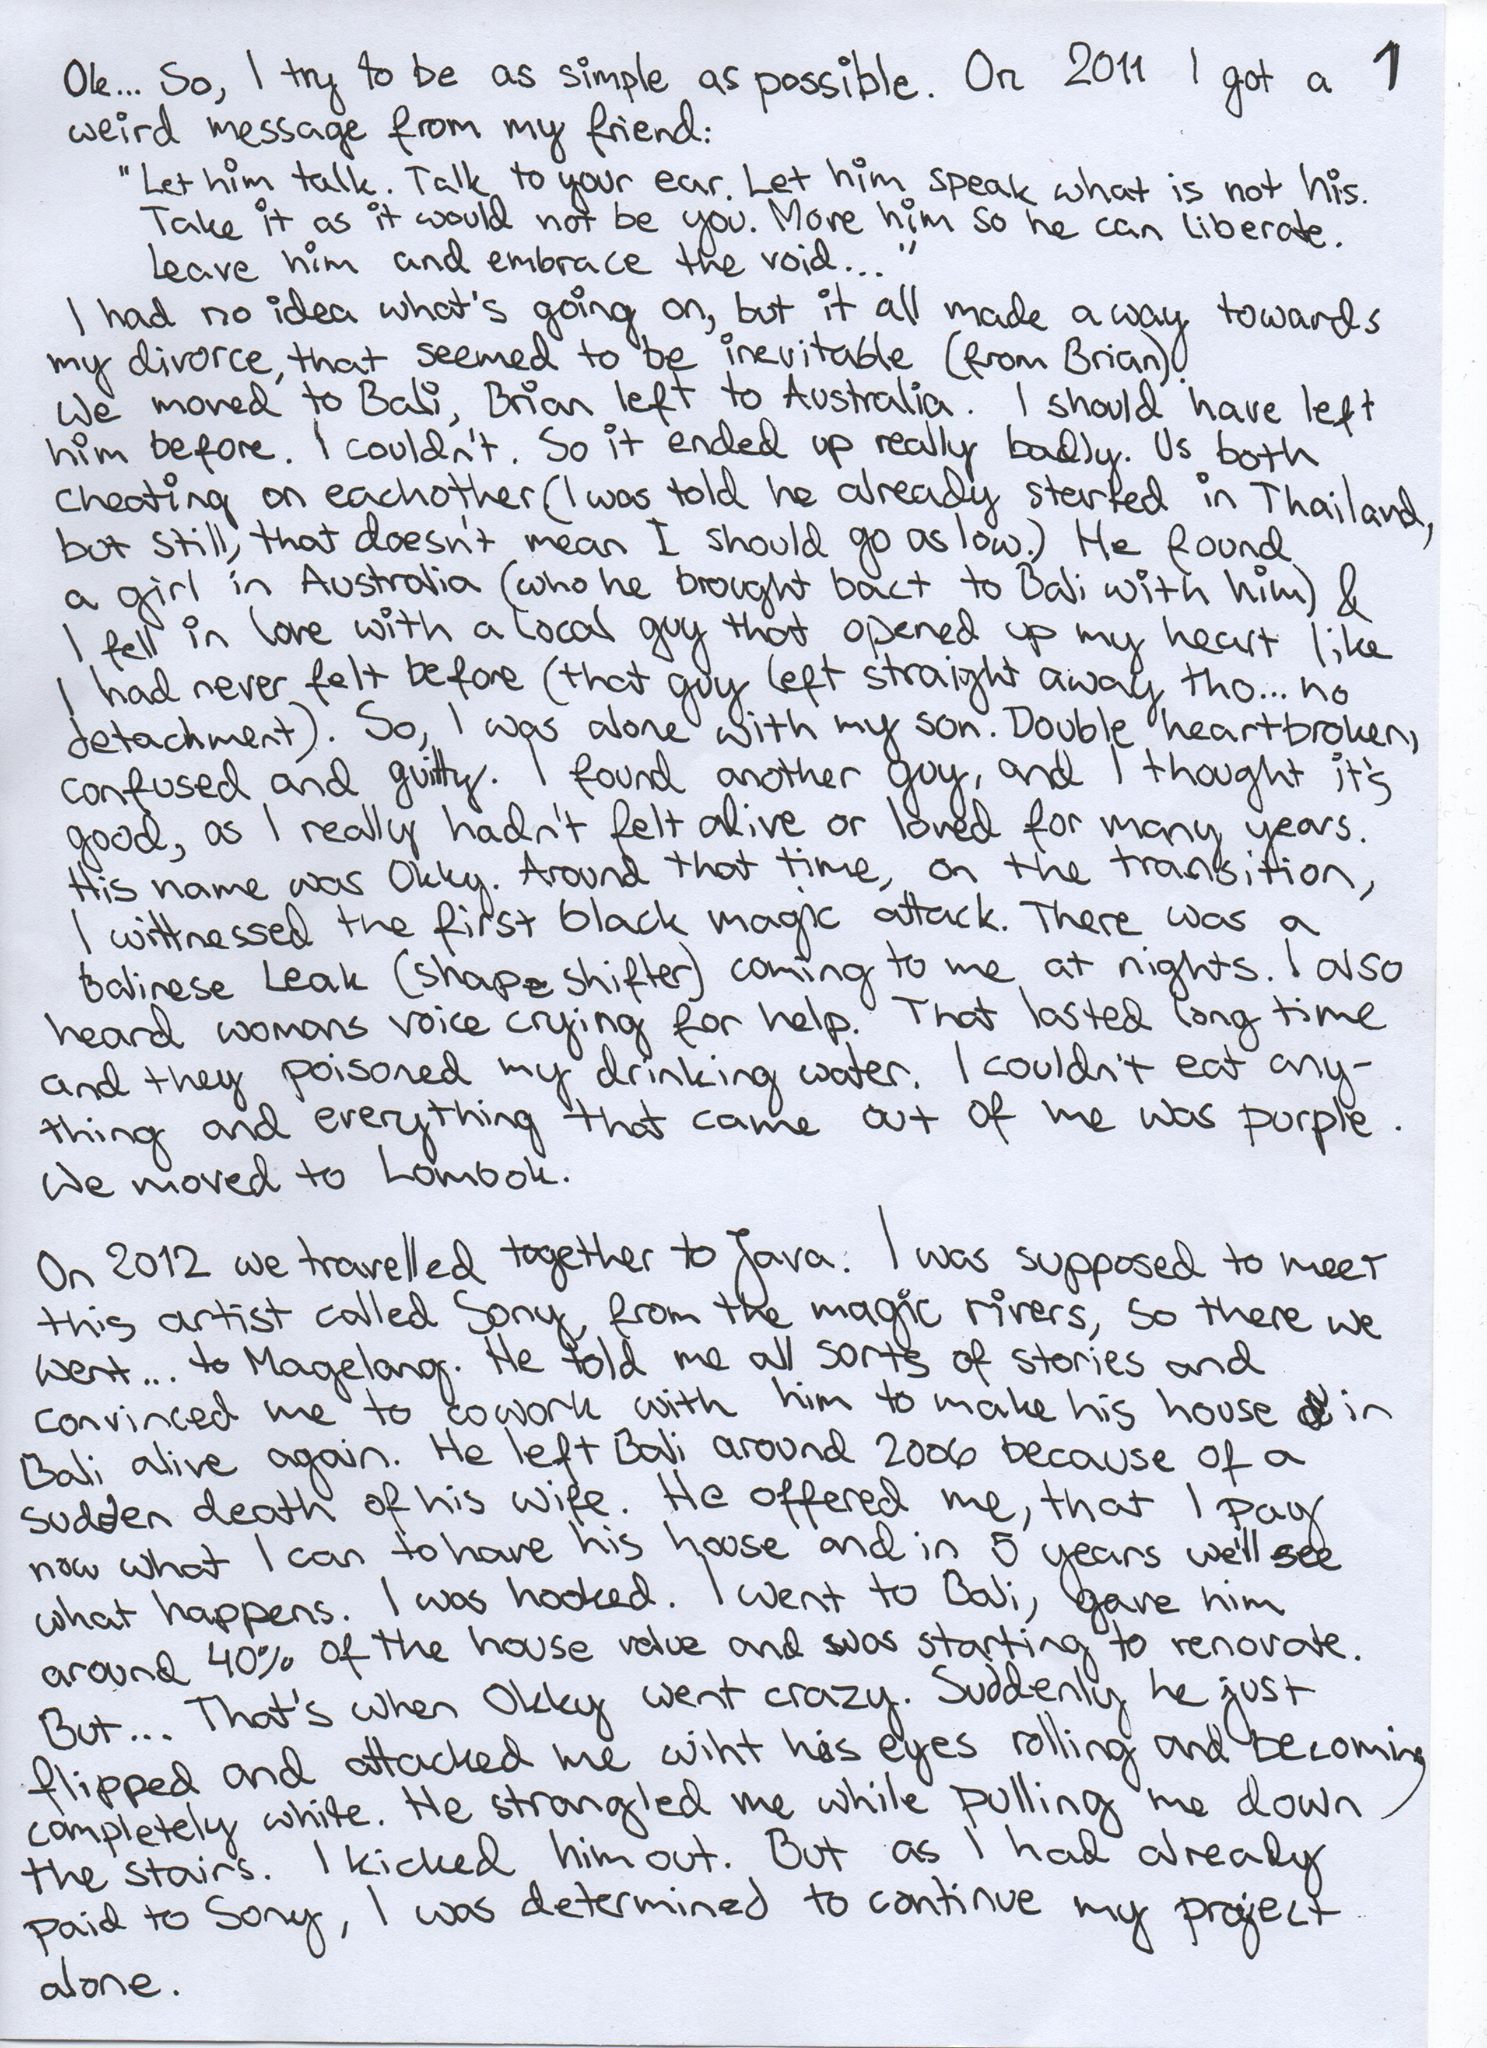 Ok... So, I try to be as simple as possible. On 2011 I got a 1
weird message from my friend:
"Let him talk. Talk to your ear. Let him speak what is not his.
Take it as it would not be you. Move him so he can liberate.
Leave him and embrace the void..."
I had no idea what's going on, but it all made a way towards
my divorce, that seemed to be inevitable (from Brian).
We moved to Bali, Brian left to Australia. I should have left
him before. I couldn't. So it ended up really badly. Us both
cheating on eachother (I was told he already started in Thailand,
but still, that doesn't mean I should go as low.) He found
a girl in Australia (who he brought bact to Bali with him) &
I fell in love with a local guy that opened up my heart like
I had never felt before (that guy left straight away tho... no
detachment). So, I was alone with my son. Double heartbroken,
confused and guilty. I found another guy, and I thought it's
good, as I really hadn't felt alive or loved for many years.
His name was Okky. Around that time, on the transition,
I wittnessed the first black magic attack. There was a
Balinese Leak (shape shifter) coming to me at nights. I also
heard womans voice crying for help. That lasted long time
and they poisoned my drinking water. I couldn't eat any-
thing and everything that came out of me was purple.
We moved to Lombok.
On 2012 we travelled together to Java. I was supposed to meet
this artist called Sony, from the magic rivers, so there we
went... to Magelang. He told me all sorts of stories and
convinced me to cowork with him to make his house in
Bali alive again. He left Bali around 2006 because of a
sudden death of his wife. He offered me, that I pay
now what I can to have his house and in 5 years we'll see
what happens. I was hooked. I went to Bali, gave him
around 40% of the house value and was starting to renovate.
But... That's when Okky went crazy. Suddenly he just
flipped and attacked me wiht his eyes rolling and becoming
completely white. He strangled me while pulling me down
the stairs. I kicked him out. But as I had already
paid to Sony, I was determined to continue my project
alone.